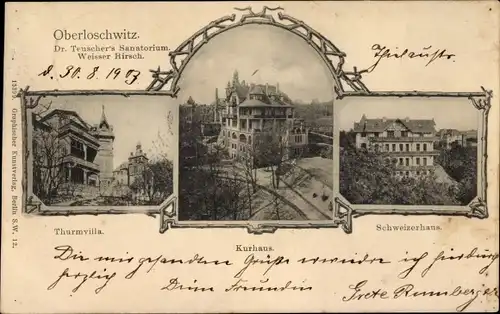 Oberloschwitz.
Dr. Teuscher's Sanatorium,
Weisser Hirsch.
d. 30. 8. 1903
15195. Graphischer Kunstverlag, Berlin S.W. 12.
Thurmvilla.
Kurhaus.
Schweizerhaus.
Die mir gesandten Grüße erwidere ich hierdurch
herzlich Deine Freundin
Grete Rumberger